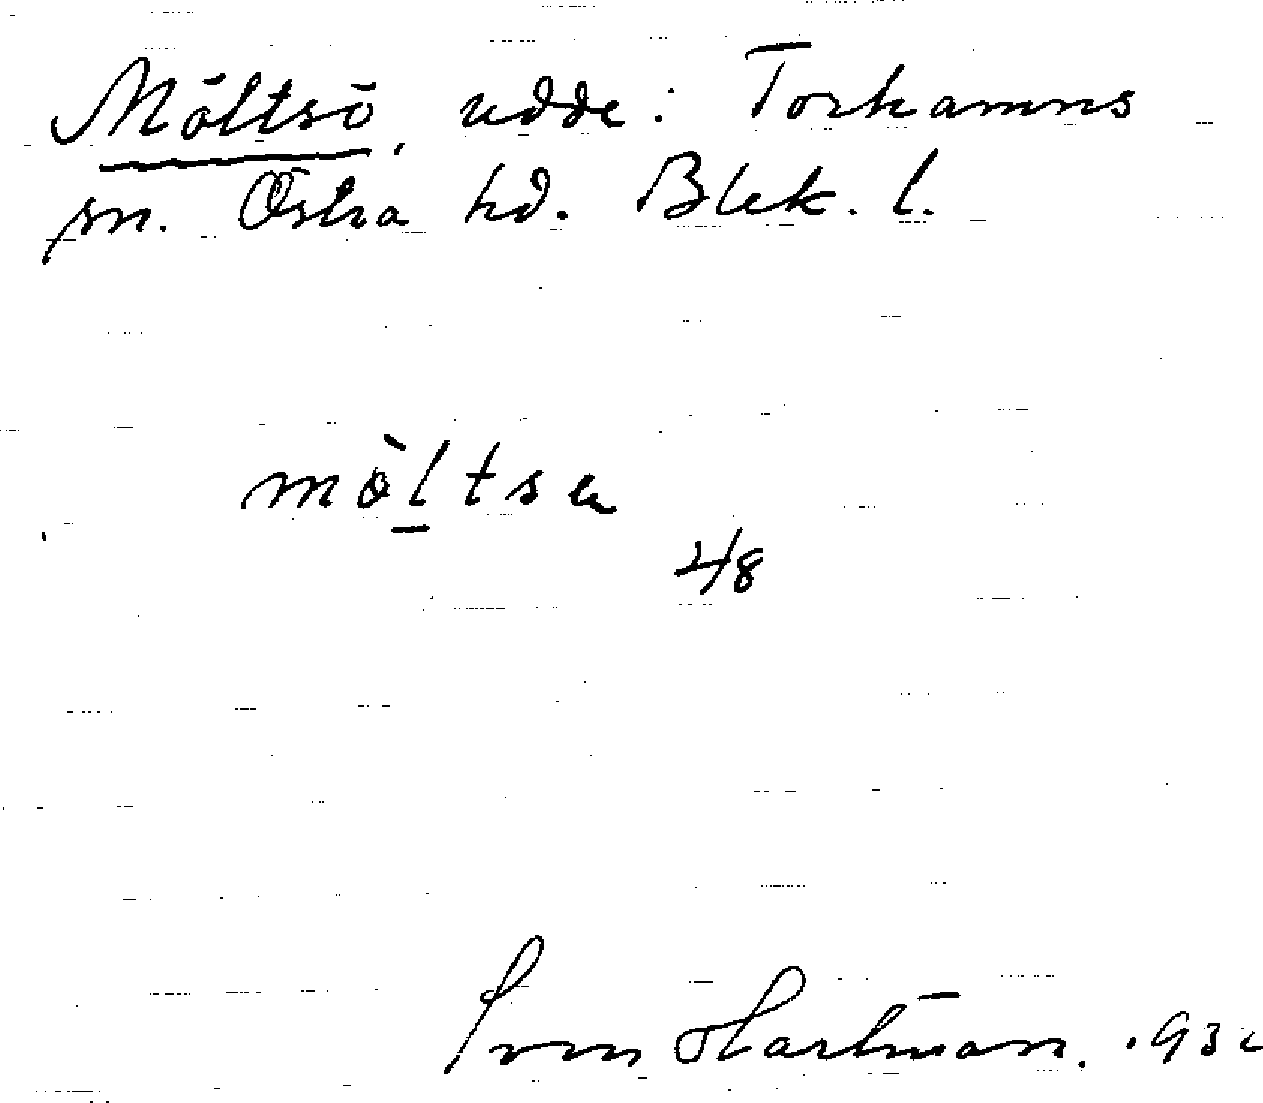 Möltsö, udde: Torhamns
sn. Östra hd. Blek. l.
mö̀ltsen
2/8
Sven Hartman. 1932